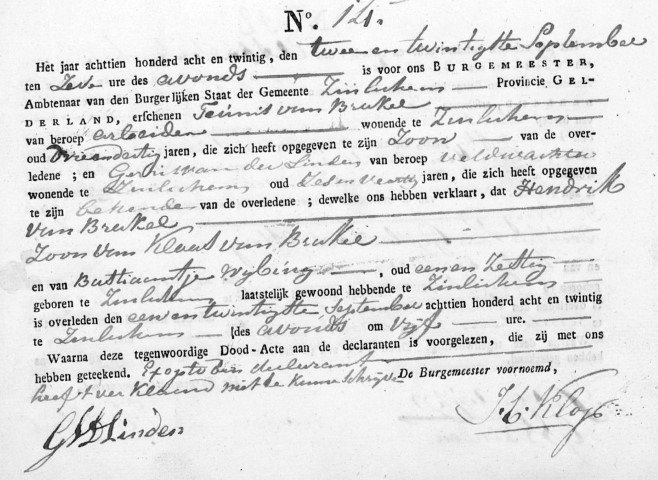 No. 12.
Het jaar achttien honderd acht en twintig, den twee en twintigste September
ten Zeve ure des avonds is voor ons BURGEMEESTER,
Ambtenaar van den Burgerlijken Staat der Gemeente Zuilichem Provincie GEL-
DERLAND, erschenen Teunis van Brakel
van beroep arbeider wonende te Zuilichem
oud jaren, die zich heeft opgegeven te zijn Zoon van de over-
ledene; en Gerrit van der Linden van beroep veldwachter
wonende te Zuilichem oud Zesenveertig jaren, die zich heeft opgegeven
te zijn bekende van de overledene; dewelke ons hebben verklaart, dat Hendrik
van Brakel
Zoon van Klaas van Brakel
en van Bastiaantje , oud eenen Zestig
geboren te Zuilichem laatstelijk gewoond hebbende te Zuilichem
is overleden den een en twintigste September achttien honderd acht en twintig
te Zuilichem des avonds om Vijf ure.
Waarna deze tegenwoordige Dood-Acte aan de declaranten is voorgelezen, die zij met ons
hebben geteekend. Exepto den declarant
heeft verklaard niet te kunne schrijve De Burgemeester voornoemd,
GVDLinden